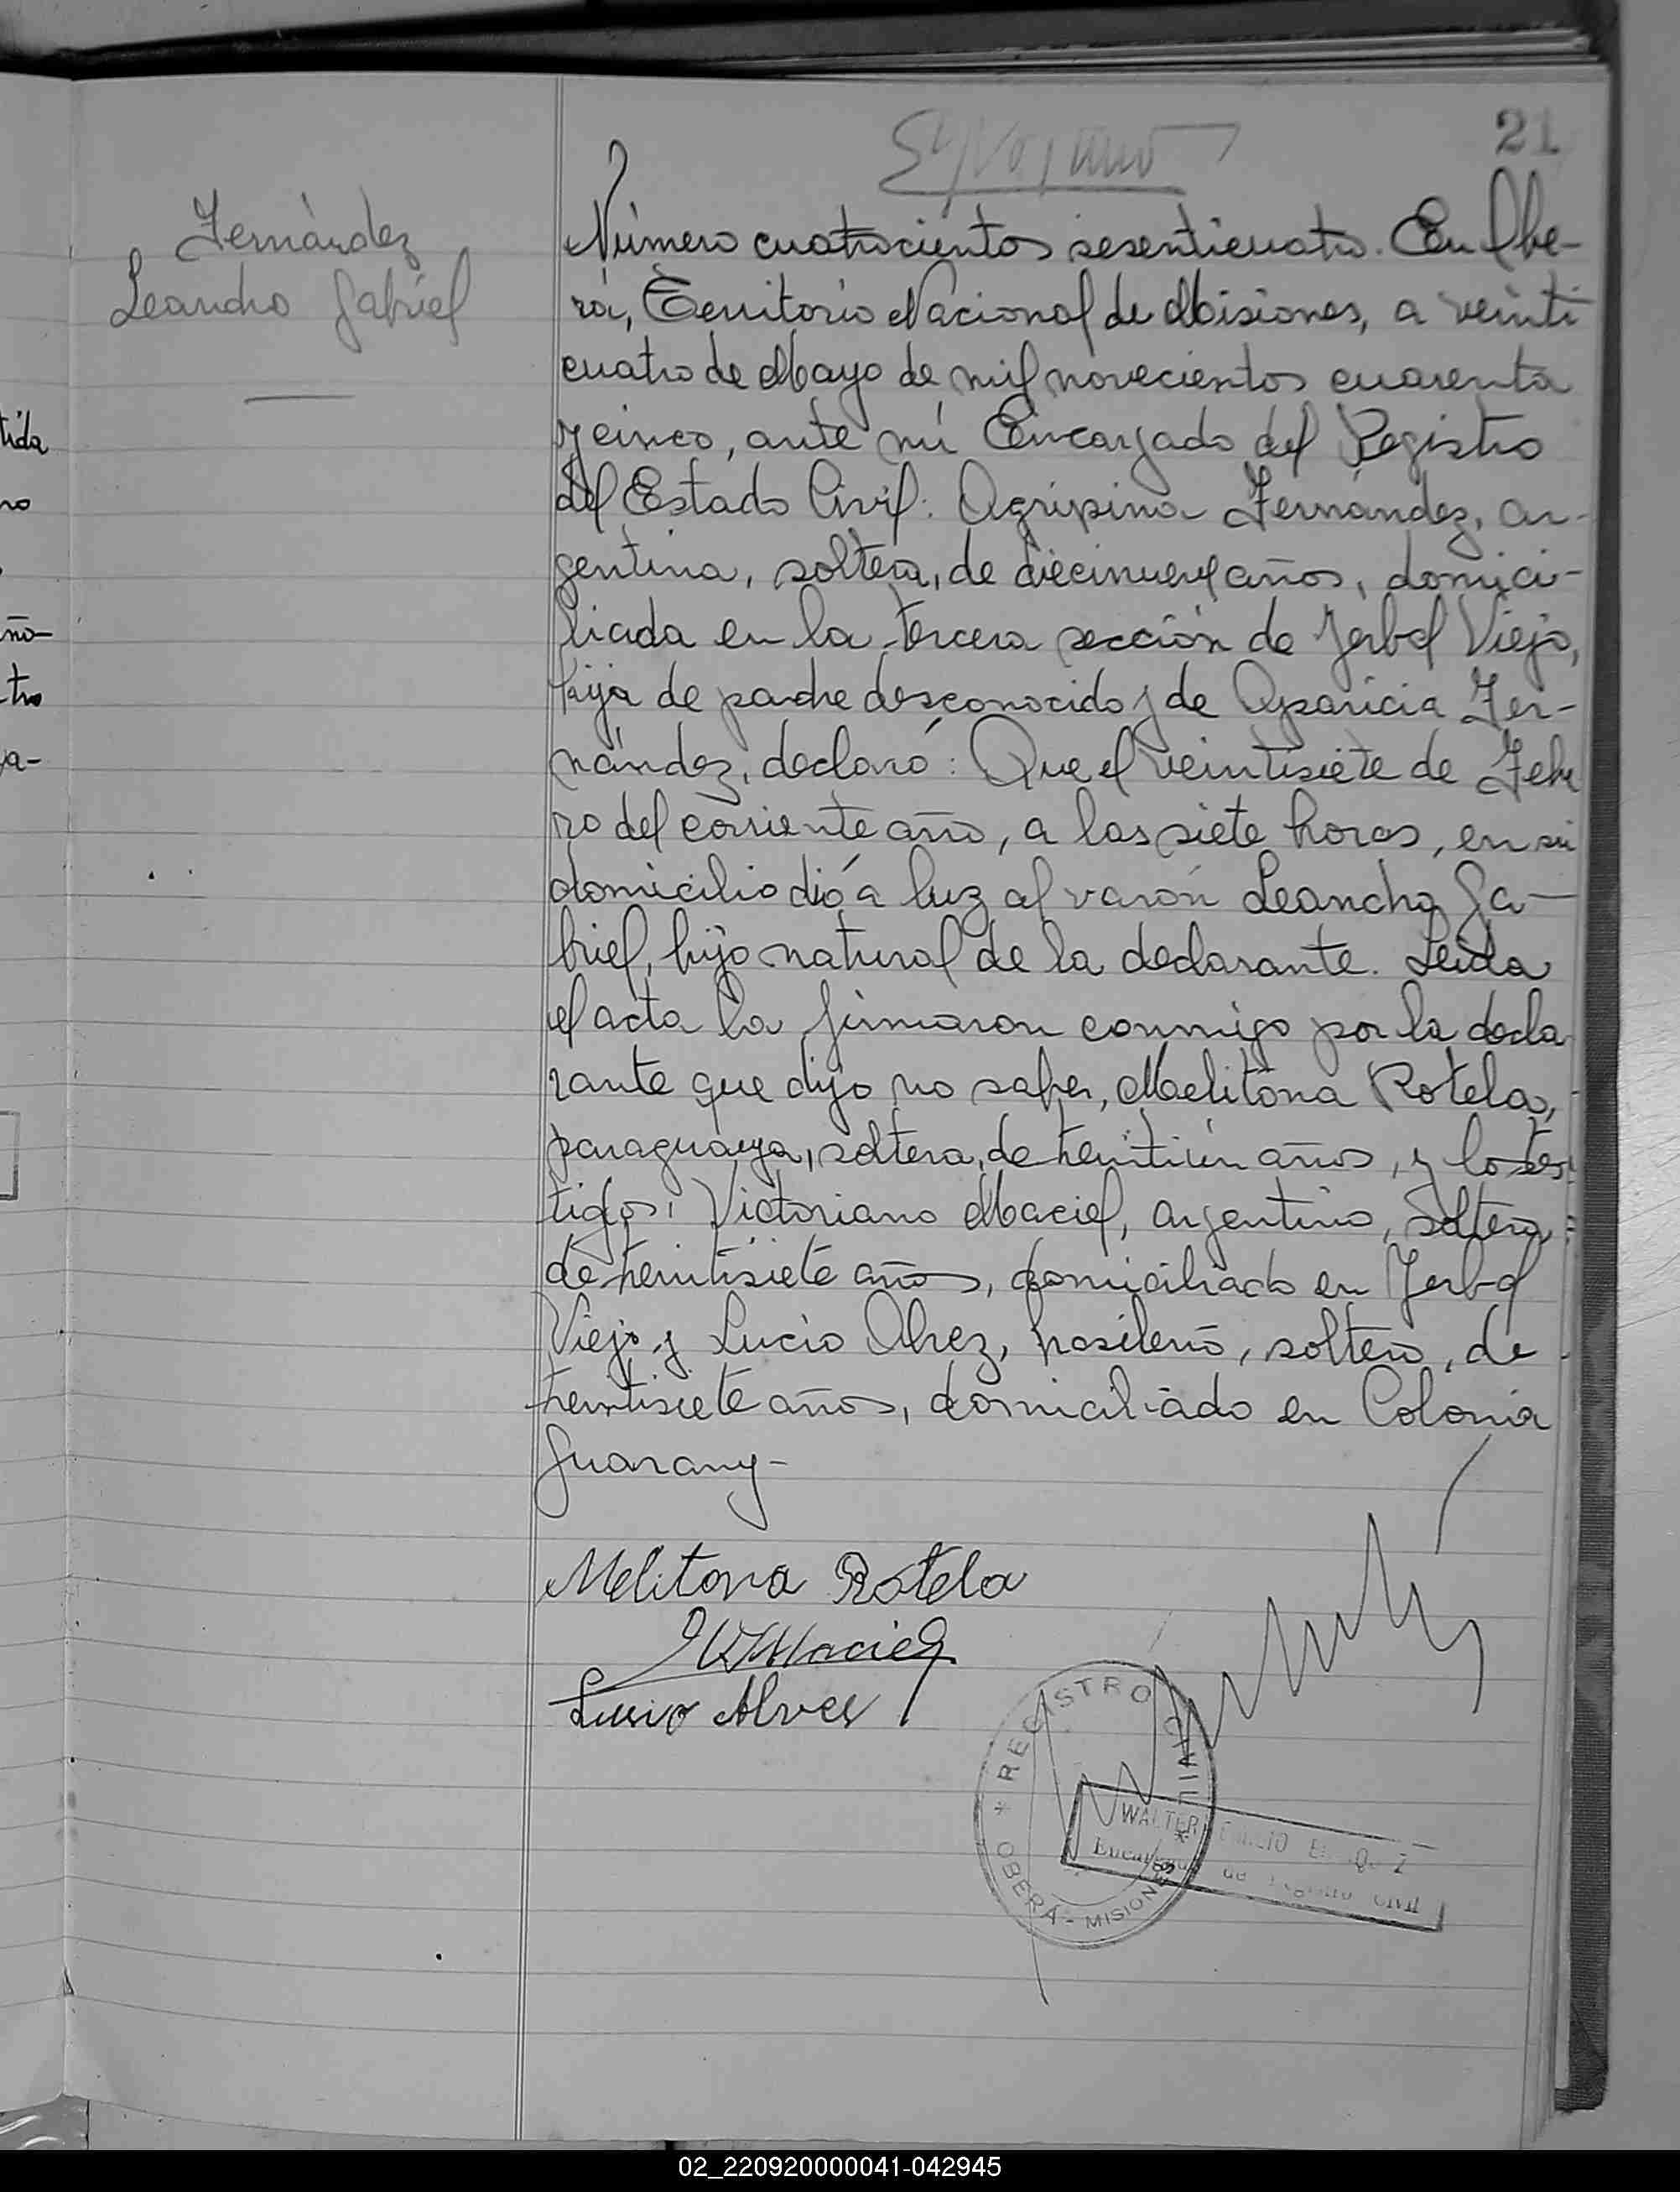 21
Fernández
Leandro Gabriel
Número cuatrocientos sesenticuatro. En Obe-
rá, Territorio Nacional de Misiones, a veinti
cuatro de Mayo de mil novecientos cuarenta
y cinco, ante mí Encargado del Registro
del Estado Civil: Agripina Fernández, ar-
gentina, soltera, de diecinueve años, domici-
liada en la tercera sección de Yerbal Viejo,
hija de padre desconocido y de Aparicia Fer-
nández, declaró: Que el veintisiete de Febre
ro del corriente año, a las siete horas, en su
domicilio dió a luz al varón Leandro Ga-
briel, hijo natural de la declarante. Leída
el acta la firmaron conmigo por la decla
rante que dijo no saber, Melitona Rotela,
paraguaya, soltera, de treintiún años, y los tes
tigos: Victoriano Maciel, argentino, soltero,
de treintisiete años, domiciliado en Yerbal
Viejo y Lucio Alvez, brasileño, soltero, de
treintisiete años, domiciliado en Colonia
Guarany-
Melitona Rotela
Maciel
Lusio Alves
REGISTRO CIVIL
OBERÁ - MISIONES
WALTER
Encargado de Registro Civil
tida
ro
ño-
tro
a-
02_220920000041-042945